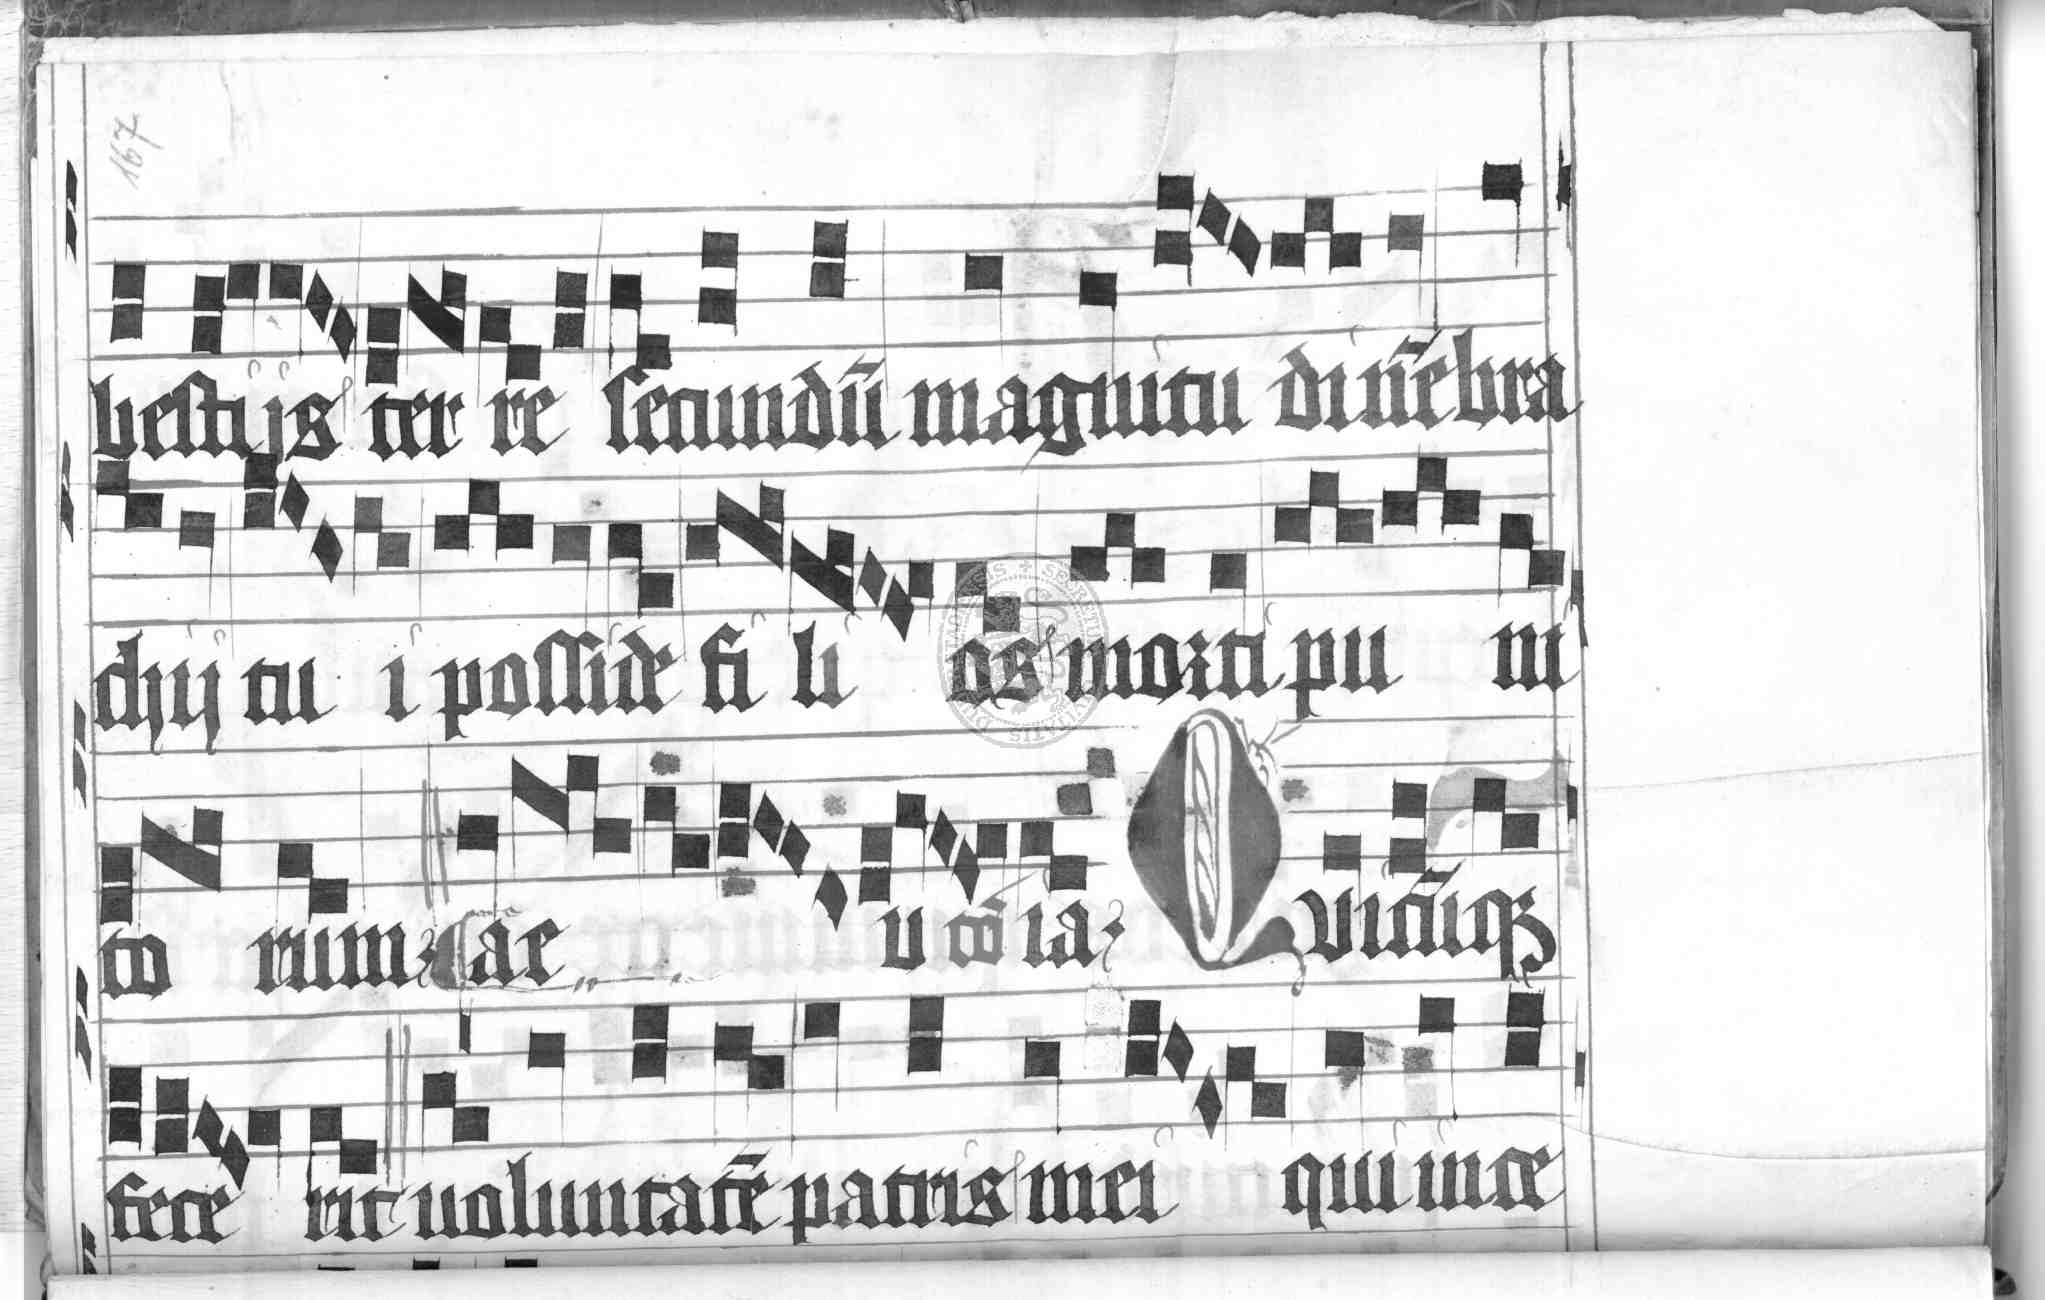 167
bestijs ter re secundū magnitu dinē bra
chij tu i posside fi li os morti fi
to rum Cāe u cō ia Quicūqꝫ
fece rit uoluntatē patris mei qui in ce